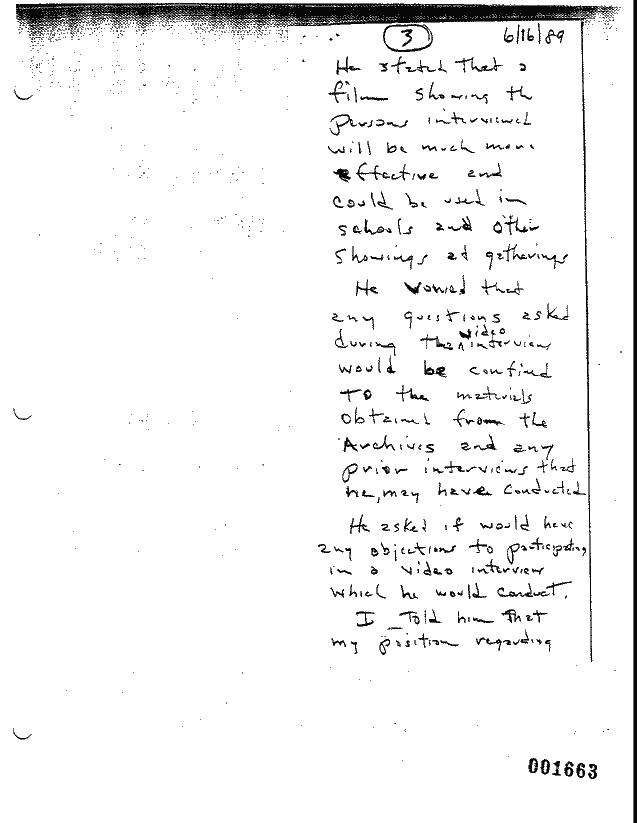 3 6/16/89
He stated that a
film showing the
persons interviewed
will be much more
effective and
could be used in
schools and other
showings at gatherings
He vowed that
any questions asked
during the video interview
would be confined
to the materials
obtained from the
Archives and any
prior interviews that
he, may have conducted
He asked if would have
any objections to participating
in a video interview
which he would conduct.
I told him that
my position regarding
001663